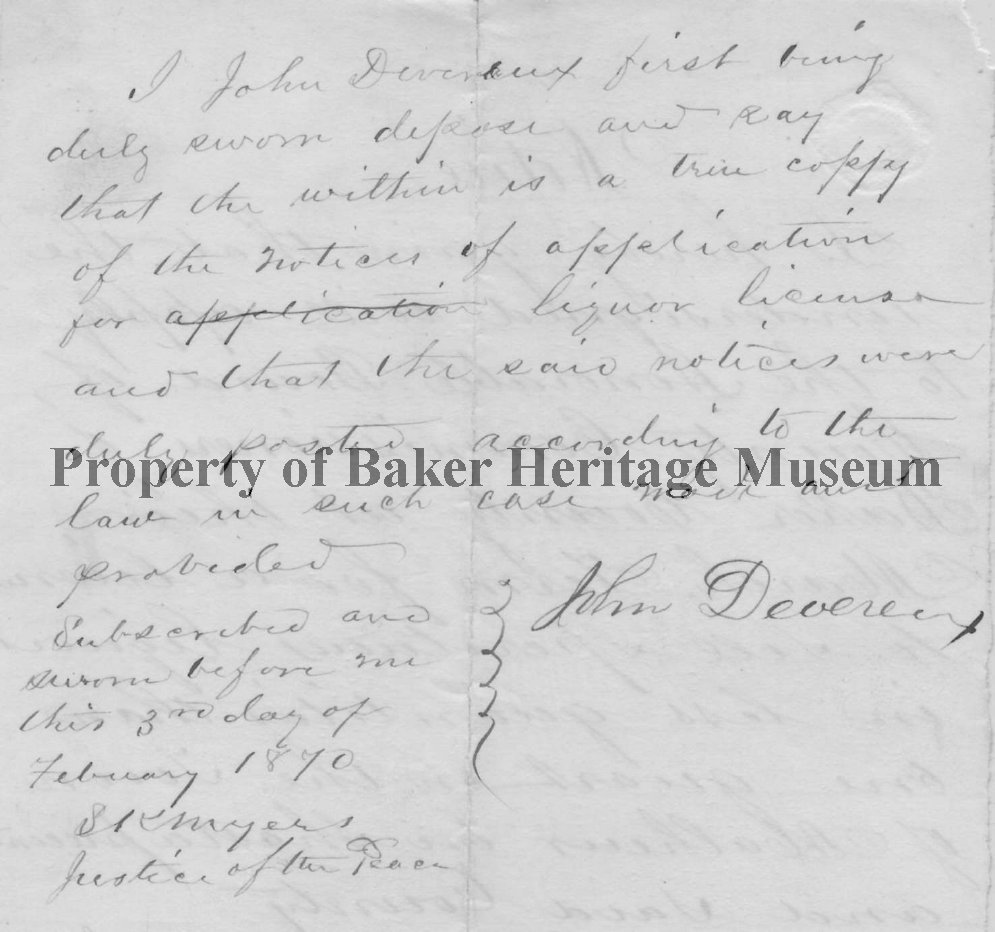 I John Devereux first being
duly sworn depose and say
that the within is a true coppy
of the notices of application
for application liquor license
and that the said notices were
duly posted according to the
Property of Baker Heritage Museum
law in such case made and
provided
John Devereux
Subscribed and
sworn before me
this 3rd day of
Febuary 1870
S K Myers
Justice of the Peace